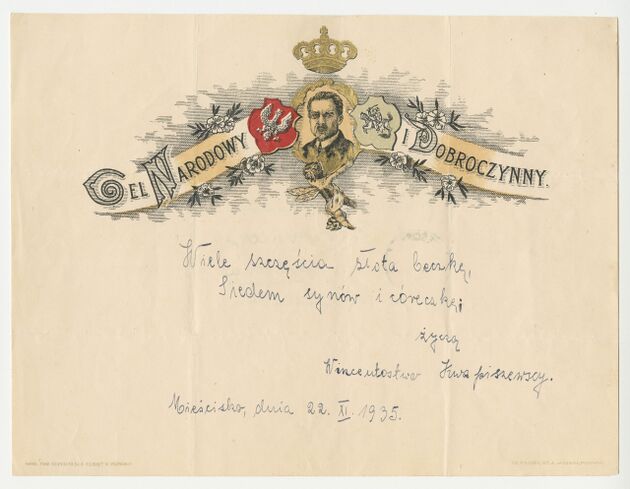 CEL NARODOWY I DOBROCZYNNY.
Wiele szczęścia złota beczkę,
Siedem synów i córeczkę;
życzą
Wincentostwo Kwapiszewscy.
Mieścisko, dnia 22. XI. 1935.